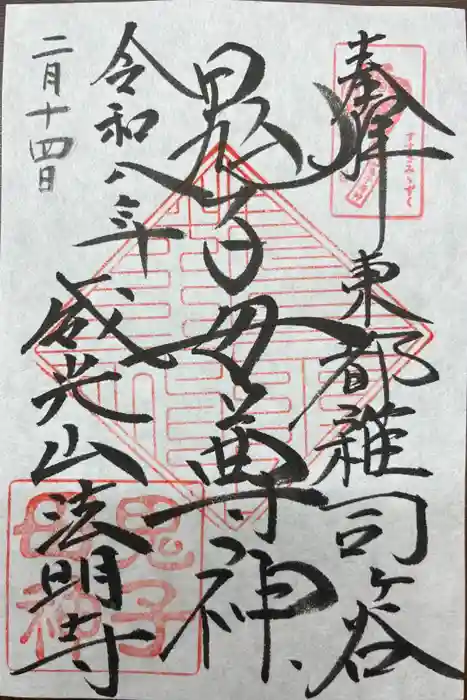 奉拝
東都雑司ヶ谷
鬼子母尊神
令和八年
二月十四日
威光山法明寺
すすきみゝずく
鬼子母神